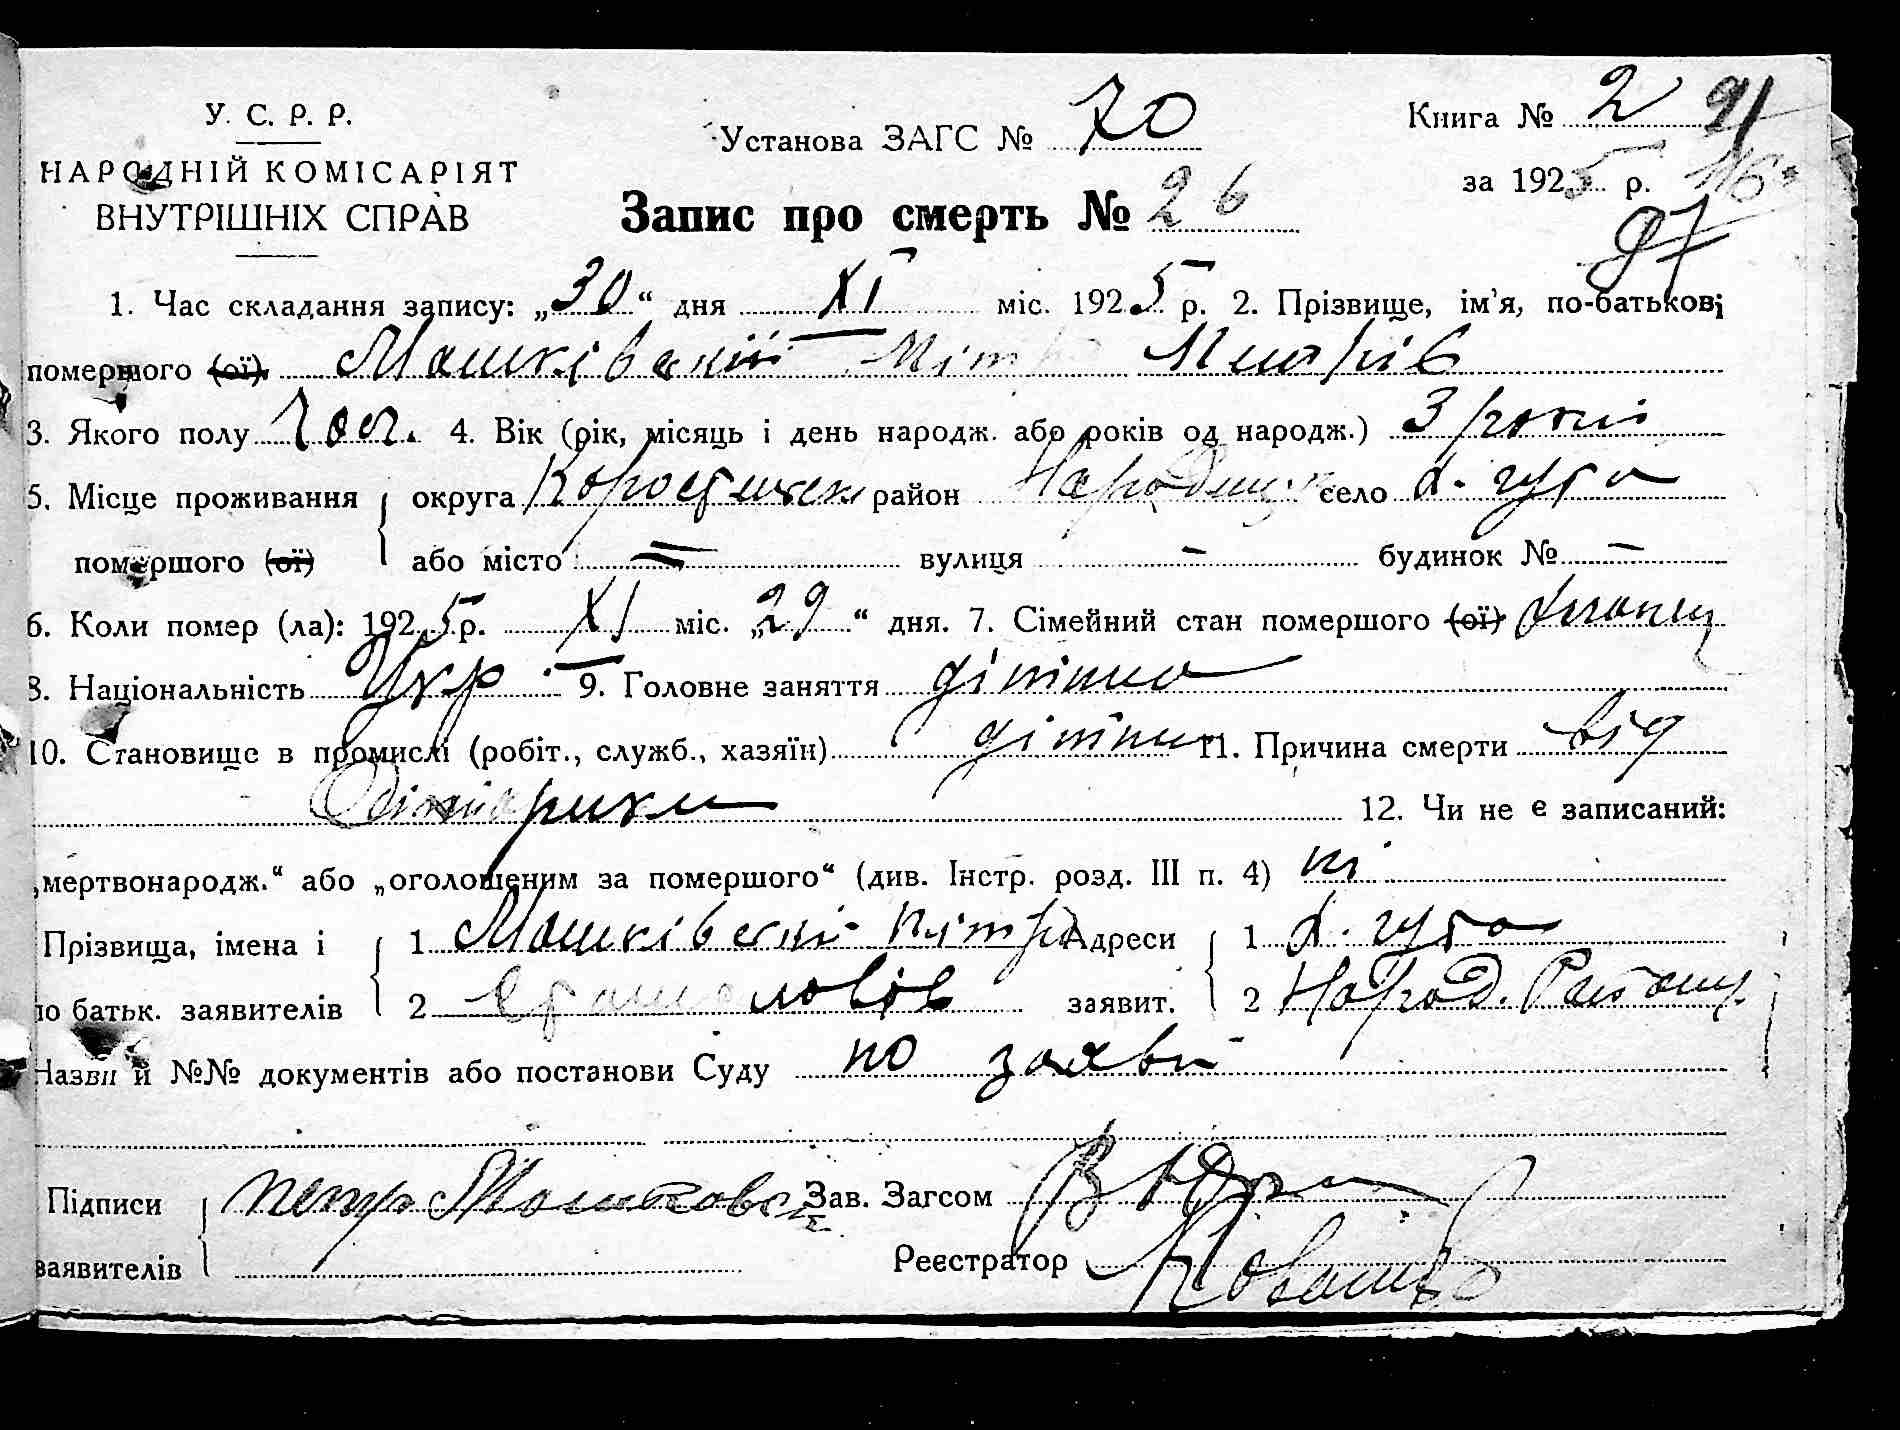 У. С. Р. Р.
НАРОДНІЙ КОМІСАРІЯТ
ВНУТРІШНІХ СПРАВ
Установа ЗАГС № 70
Книга № 2 91
за 1925 р. 116
87
Запис про смерть № 26
1. Час складання запису: „30“ дня XI міс. 1925 р. 2. Прізвище, ім'я, по-батькові
помершого (ої) Машківський
3. Якого полу чол. 4. Вік (рік, місяць і день народж. або років од народж.) 3 роки
5. Місце проживання округа Коростишен район Народиц село Л. гута
помершого (ої) або місто = вулиця - будинок № -
6. Коли помер (ла): 1925 р. XI міс. „29“ дня. 7. Сімейний стан помершого (ої)
8. Національність Укр 9. Головне заняття дітина
10. Становище в промислі (робіт., служб., хазяїн) дітина 11. Причина смерти від
12. Чи не є записаний:
„мертвонародж.“ або „оголошеним за помершого“ (див. Інстр. розд. III п. 4) ні
Прізвища, імена і 1 Машківський Пітро Адреси 1 Л. гута
по батьк. заявителів 2 заявит. 2 Народ. Району
Назви й №№ документів або постанови Суду по заяви
Підписи Петро Машковск Зав. Загсом
заявителів Реєстратор